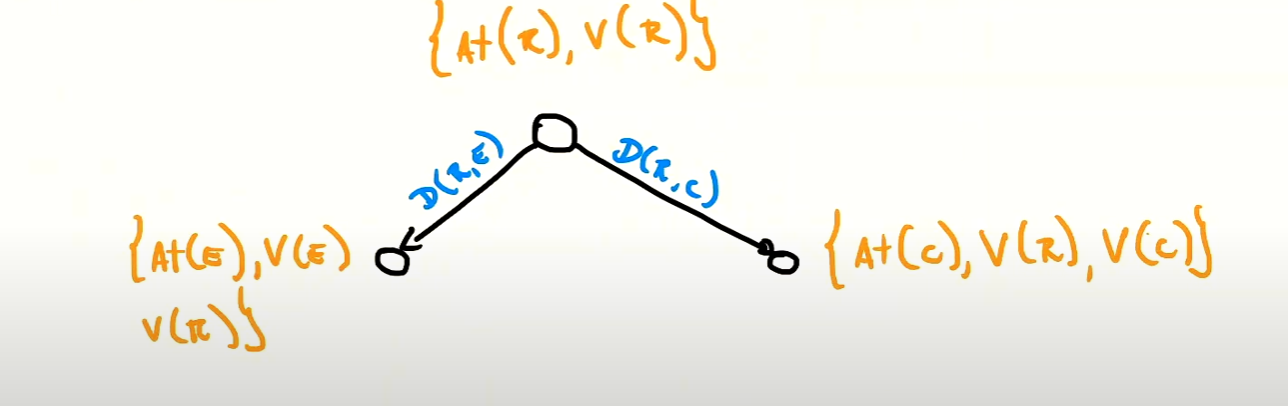 {At(R), V(R)}
D(R,E)
D(R,C)
{At(E), V(E)
V(R)}
{At(C), V(R), V(C)}